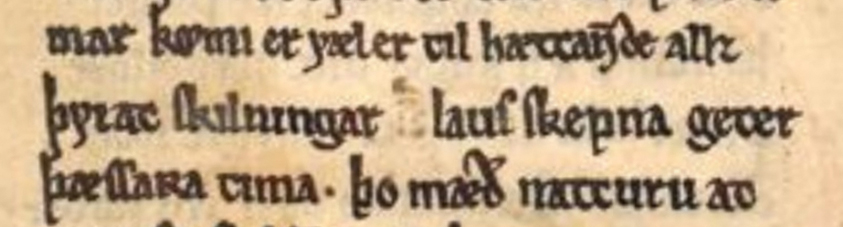 mar komi er yæl er til hættan̄de allz
þyrat skilningar lauſ ſkepna geter
þæſſara tima · þo mæꝺ̅ natturu at